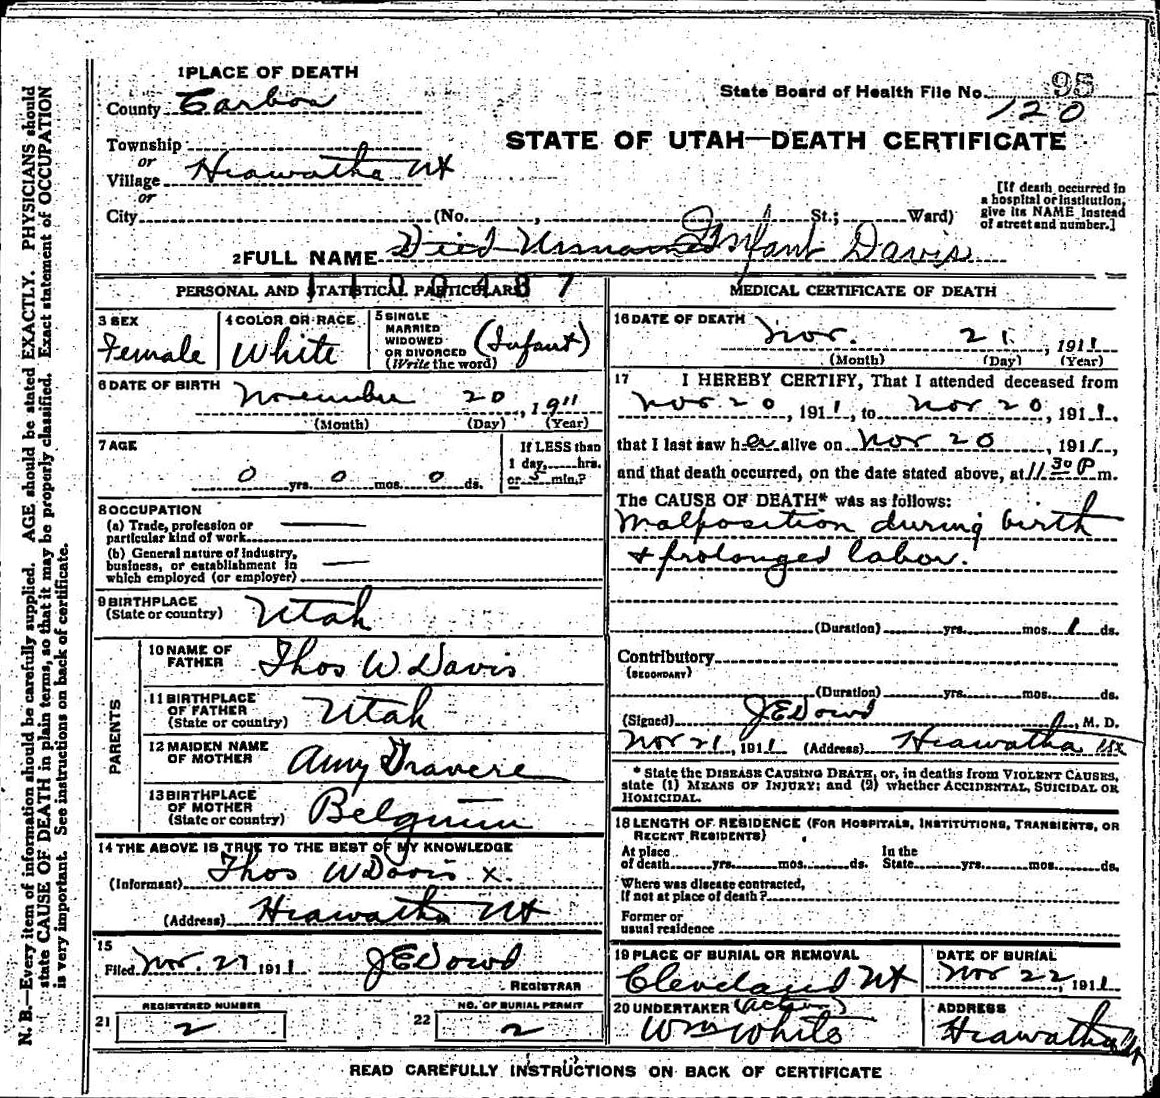 N. B.—Every item of information should be carefully supplied. AGE should be stated EXACTLY. PHYSICIANS should
state CAUSE OF DEATH in plain terms, so that it may be properly classified. Exact statement of OCCUPATION
is very important. See instructions on back of certificate.
1 PLACE OF DEATH
County Carbon
Township
or
Village Hiawatha Ut
or
City (No. , St.; Ward)
State Board of Health File No. 95
120
STATE OF UTAH—DEATH CERTIFICATE
[If death occurred in
a hospital or institution,
give its NAME instead
of street and number.]
2 FULL NAME Died Unnamed Infant Davis
PERSONAL AND STATISTICAL PARTICULARS
3 SEX
Female
4 COLOR OR RACE
White
5 SINGLE
MARRIED
WIDOWED
OR DIVORCED
(Write the word)
(Infant)
6 DATE OF BIRTH November 20, 1911
(Month) (Day) (Year)
7 AGE
0 yrs. 0 mos. 0 ds.
If LESS than
1 day, hrs.
or 5 min.?
8 OCCUPATION
(a) Trade, profession or
particular kind of work
(b) General nature of industry,
business, or establishment in
which employed (or employer)
9 BIRTHPLACE
(State or country) Utah
PARENTS
10 NAME OF
FATHER Thos W. Davis
11 BIRTHPLACE
OF FATHER
(State or country) Utah
12 MAIDEN NAME
OF MOTHER Amy
13 BIRTHPLACE
OF MOTHER
(State or country) Belgium
14 THE ABOVE IS TRUE TO THE BEST OF MY KNOWLEDGE
(Informant) Thos W Davis x.
(Address) Hiawatha Ut
15
Filed Nov. 21 1911 J E Dowd
REGISTRAR
REGISTERED NUMBER
21 2
NO. OF BURIAL PERMIT
22 2
MEDICAL CERTIFICATE OF DEATH
16 DATE OF DEATH Nov. 21, 1911
(Month) (Day) (Year)
17 I HEREBY CERTIFY, That I attended deceased from
Nov 20, 1911, to Nov 20, 1911,
that I last saw her alive on Nov 20, 1911,
and that death occurred, on the date stated above, at 11 30 P m.
The CAUSE OF DEATH* was as follows:
Malposition during birth
& prolonged labor.
(Duration) yrs. mos. 1 ds.
Contributory
(SECONDARY)
(Duration) yrs. mos. ds.
(Signed) J E Dowd, M. D.
Nov 21, 1911 (Address) Hiawatha
* State the DISEASE CAUSING DEATH, or, in deaths from VIOLENT CAUSES,
state (1) MEANS OF INJURY; and (2) whether ACCIDENTAL, SUICIDAL OR
HOMICIDAL.
18 LENGTH OF RESIDENCE (FOR HOSPITALS, INSTITUTIONS, TRANSIENTS, OR
RECENT RESIDENTS)
At place
of death yrs. mos. ds.
In the
State yrs. mos. ds.
Where was disease contracted,
If not at place of death?
Former or
usual residence
19 PLACE OF BURIAL OR REMOVAL
Cleveland Ut
DATE OF BURIAL
Nov 22, 1911
20 UNDERTAKER (acting)
Wm White
ADDRESS
Hiawatha Ut
READ CAREFULLY INSTRUCTIONS ON BACK OF CERTIFICATE